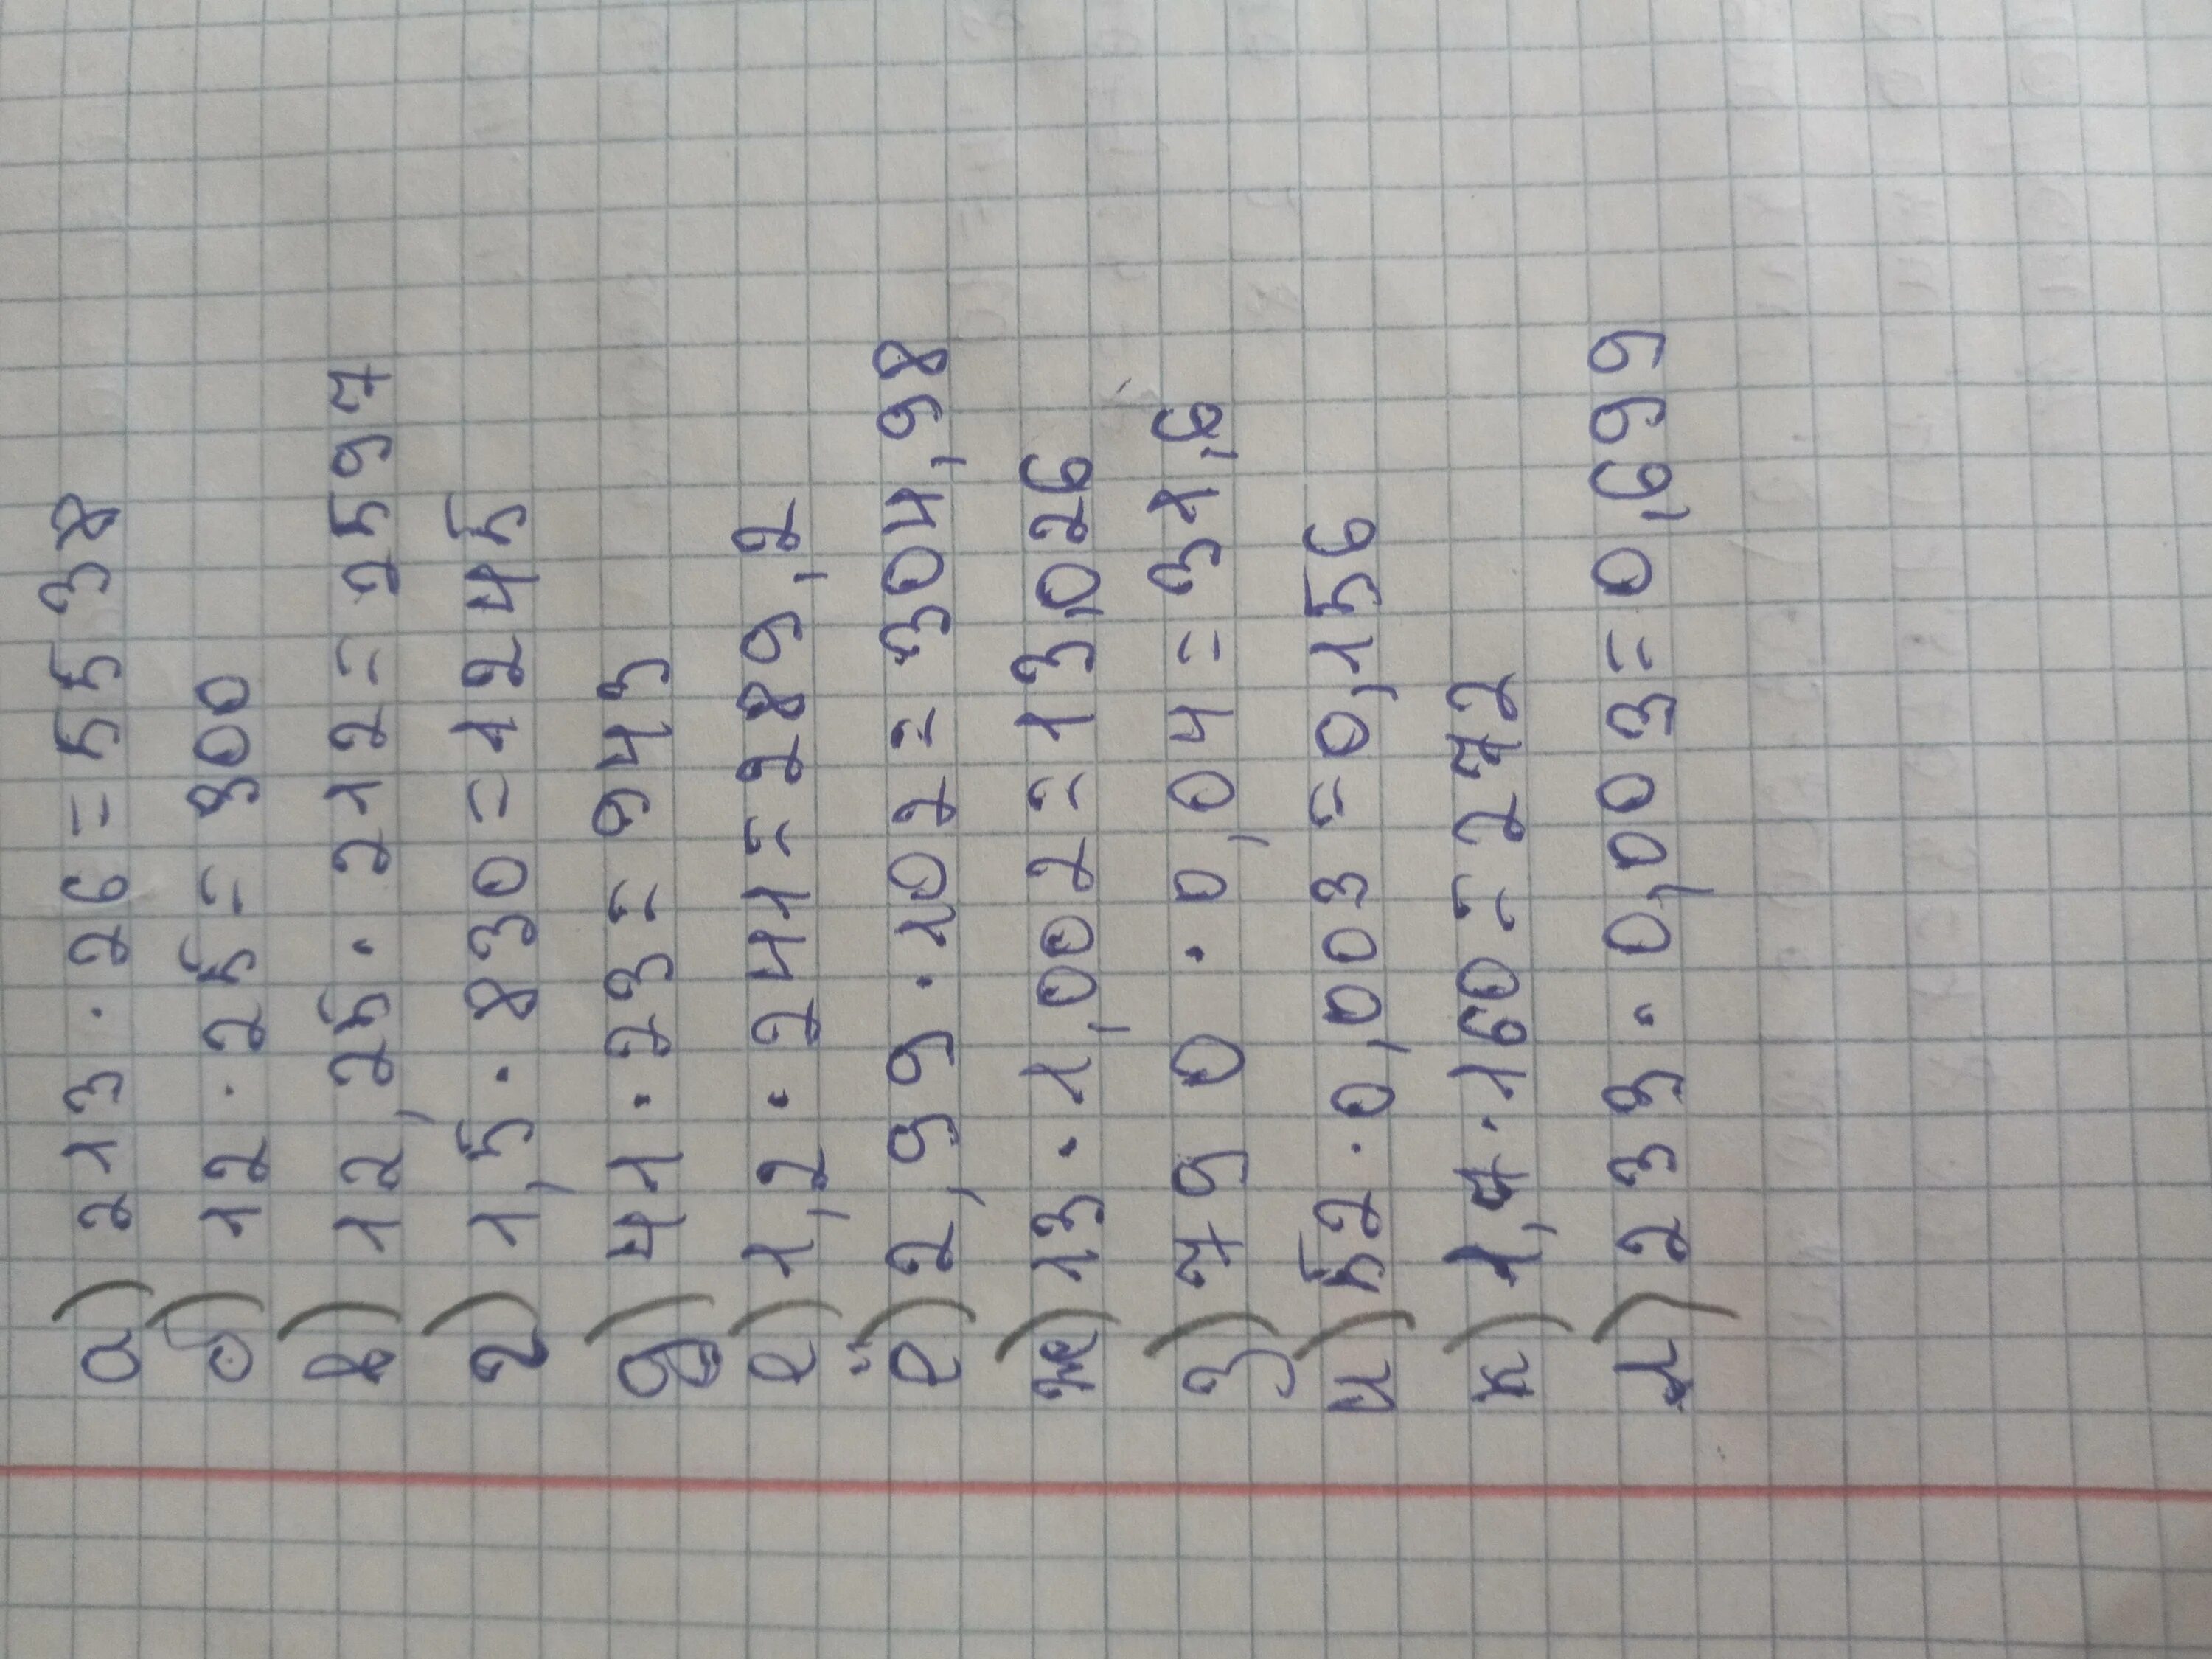 а) 213 · 26 = 5538
б) 12 · 25 = 300
в) 12,25 · 212 = 2597
г) 1,5 · 830 = 1245
д) 41 · 23 = 943
е) 1,2 · 241 = 289,2
ё) 2,99 · 102 = 304,98
ж) 13 · 1,002 = 13,026
з) 790 · 0,04 = 31,6
и) 52 · 0,003 = 0,156
к) 1,7 · 160 = 272
л) 233 · 0,003 = 0,699